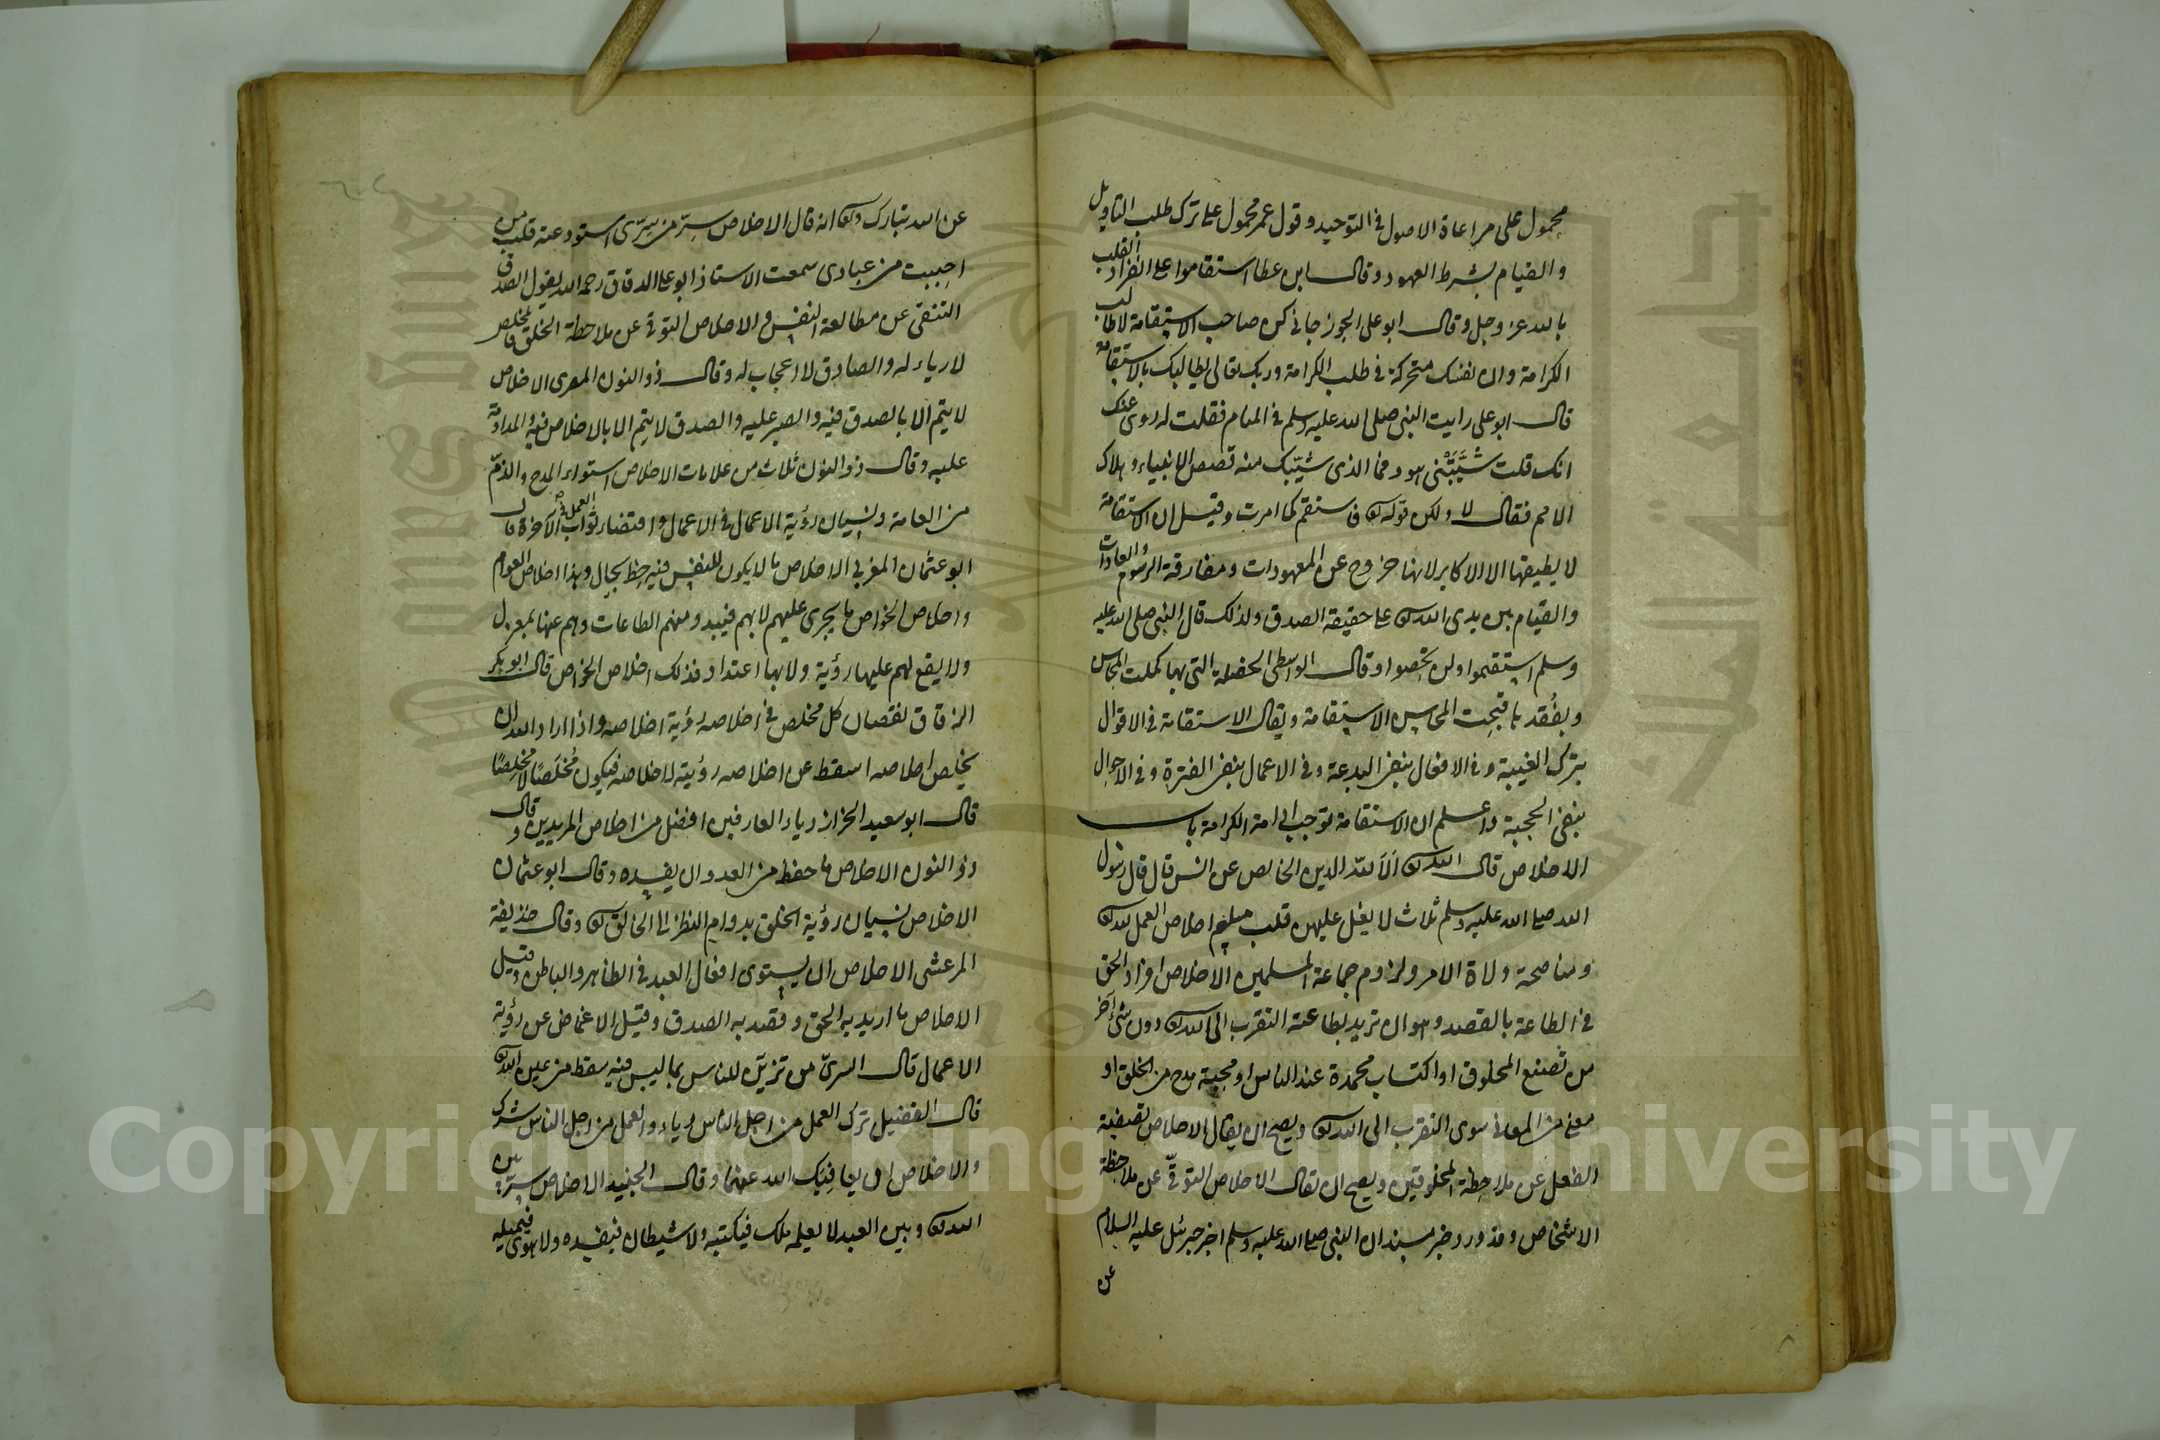 محمول على مراعاة الاصول في التوحيد وقول عمر محمول على ترك طلب التاويل
والقيام بشرط العهود وقال ابن عطا استقاموا على انفراد القلب
بالله عز وجل وقال ابو علي الجوزجاني كن صاحب الاستقامة لا طالب
الكرامة فان نفسك متحركة في طلب الكرامة وربك تعالى يطالبك بالاستقامة
قال ابو علي رايت النبي صلى الله عليه وسلم في المنام فقلت له روى عنك
انك قلت شَيَّبَتْني هود فما الذي شيّبك منه قصص الانبياء وهلاك
الامم فقال لا ولكن قوله تع فاستقم كما امرت وقيل ان الاستقامة
لا يطيقها الا الاكابر لانها خروج عن المعهودات ومفارقة الرسوم والعادات
والقيام بين يدي الله تع على حقيقة الصدق ولذلك قال النبي صلى الله عليه
وسلم استقيموا ولن تحصوا وقال الواسطي الخصلة التي بها كملت المحاسن
وبفقد ها قبحت المحاسن الاستقامة ويقال الاستقامة في الاقوال
بترك الغيبة وفي الافعال بنفي البدعة وفي الاعمال بنفي الفترة وفي الاحوال
بنفي الحجبة واعلم ان الاستقامة توجب ادامة الكرامة باب
الاخلاص قال الله تع اَلَا لله الدين الخالص عن انس قال قال رسول
الله صلى الله عليه وسلم ثلاث لا يغل عليهن قلب مسلم اخلاص العمل لله تع
ومناصحة ولاة الامر ولزوم جماعة المسلمين الاخلاص افراد الحق
في الطاعة بالقصد وهو ان تريد بطاعته التقرب الى الله تع دون شئ آخر
من تصنع المخلوق او اكتساب محمدة عند الناس او محبة مدح من الخلق او
معنى من المعاني سوى التقرب الى الله تع ويصح ان يقال الاخلاص تصفية
الفعل عن ملاحظة المخلوقين ويصح ان يقال الاخلاص التوقّي عن ملاحظة
الاشخاص وقد ورد خبر مسند ان النبي صلى الله عليه وسلم اخبر جبرئل عليه السلام
عن
عن الله تبارك وتع انه قال الاخلاص سِرّ من سِرّي استودعته قلب من
احببت من عبادي سمعت الاستاذ ابو على الدقاق رحمه الله يقول الصدق
التنقي عن مطالعة النفس والاخلاص التوقي عن ملاحظة الخلق فالمخلص
لا رياء له والصادق لا اعجاب له وقال ذو النون المصري الاخلاص
لا يتم الا بالصدق فيه والصبر عليه والصدق لا يتم الا بالاخلاص فيه والمداومة
عليه وقال ذو النون ثلاث من علامات الاخلاص استواء المدح والذمّ
من العامة ونسيان رؤية الاعمال في الاعمال واقتضار ثواب العمل في الآخرة قال
ابو عثمان المغربي الاخلاص ما لا يكون للنفس فيه حظ بحال وهذا اخلاص العوام
واخلاص الخواص ما يجري عليهم لا بهم فيبدو منهم الطاعات وهم عنها بمعزل
ولا يقع لهم عليها رؤية ولا بها اعتداد فذلك اخلاص الخواص قال ابو بكر
الزقاق نقصان كل مخلص في اخلاصه رؤية اخلاصه واذا اراد الله ان
يخلص اخلاصه اسقط عن اخلاصه رؤيته لاخلاصه فيكون مُخلَصًا لا مُخلِصًا
قال ابو سعيد الخراز رياء العارفين افضل من اخلاص المريدين وقال
ذو النون الاخلاص ما حفظ من العدو ان يفسده وقال ابو عثمان
الاخلاص نسيان رؤية الخلق بدوام النظر الى الخالق تع وقال حذيفة
المرعشي الاخلاص ان يستوى افعال العبد في الظاهر والباطن وقيل
الاخلاص ما اريد به الحق وقصد به الصدق وقيل الاغماض عن رؤية
الاعمال قال السريّ من تزيّن للناس بما ليس فيه سقط من عين الله تع
قال الفضيل ترك العمل من اجل الناس رياء والعمل من اجل الناس شرك
والاخلاص ان يعافيك الله عنهما وقال الجنيد الاخلاص سِرّ بين
الله تع وبين العبد لا يعلمه ملك فيكتبه ولا شيطان فيفسده ولا هوى فيميله
جامعة الملك سعود
King Saud University
1957
Copyright © King Saud University